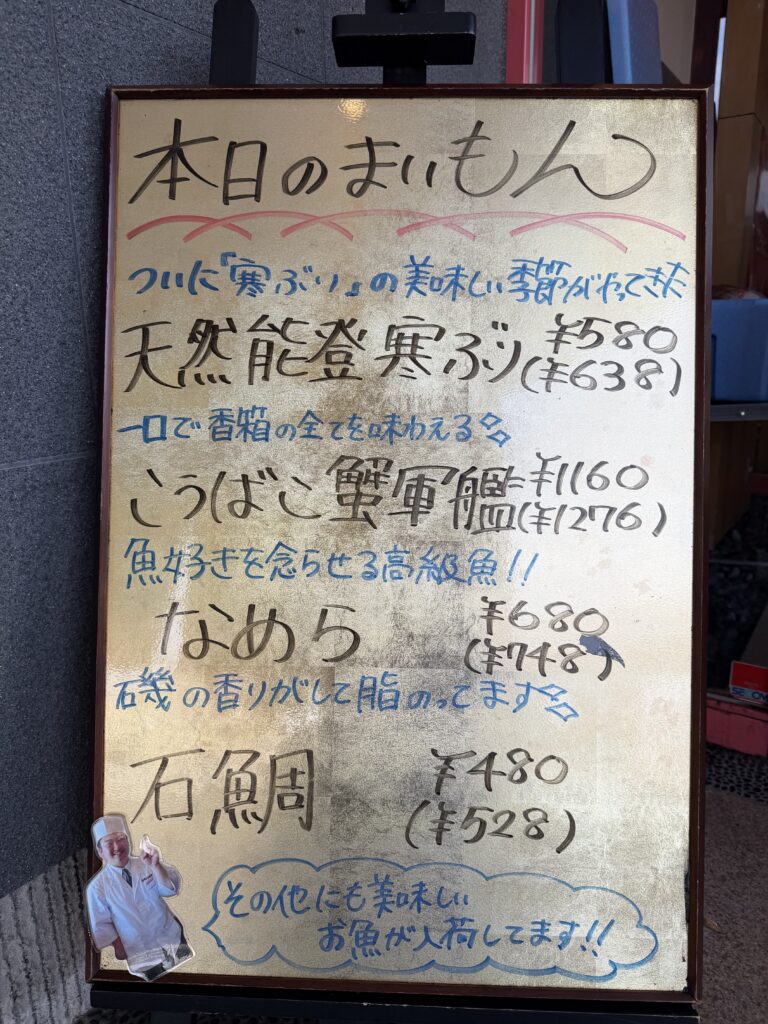 本日のまいもん
ついに『寒ぶり』の美味しい季節がやってきた
天然能登寒ぶり ¥580
(¥638)
一口で香箱の全てを味わえる
こうばこ蟹軍艦 ¥1160
(¥1276)
魚好きを念らせる高級魚!!
なめら ¥680
(¥748)
磯の香りがして脂のってます
石鯛 ¥480
(¥528)
その他にも美味しい
お魚が入荷してます!!